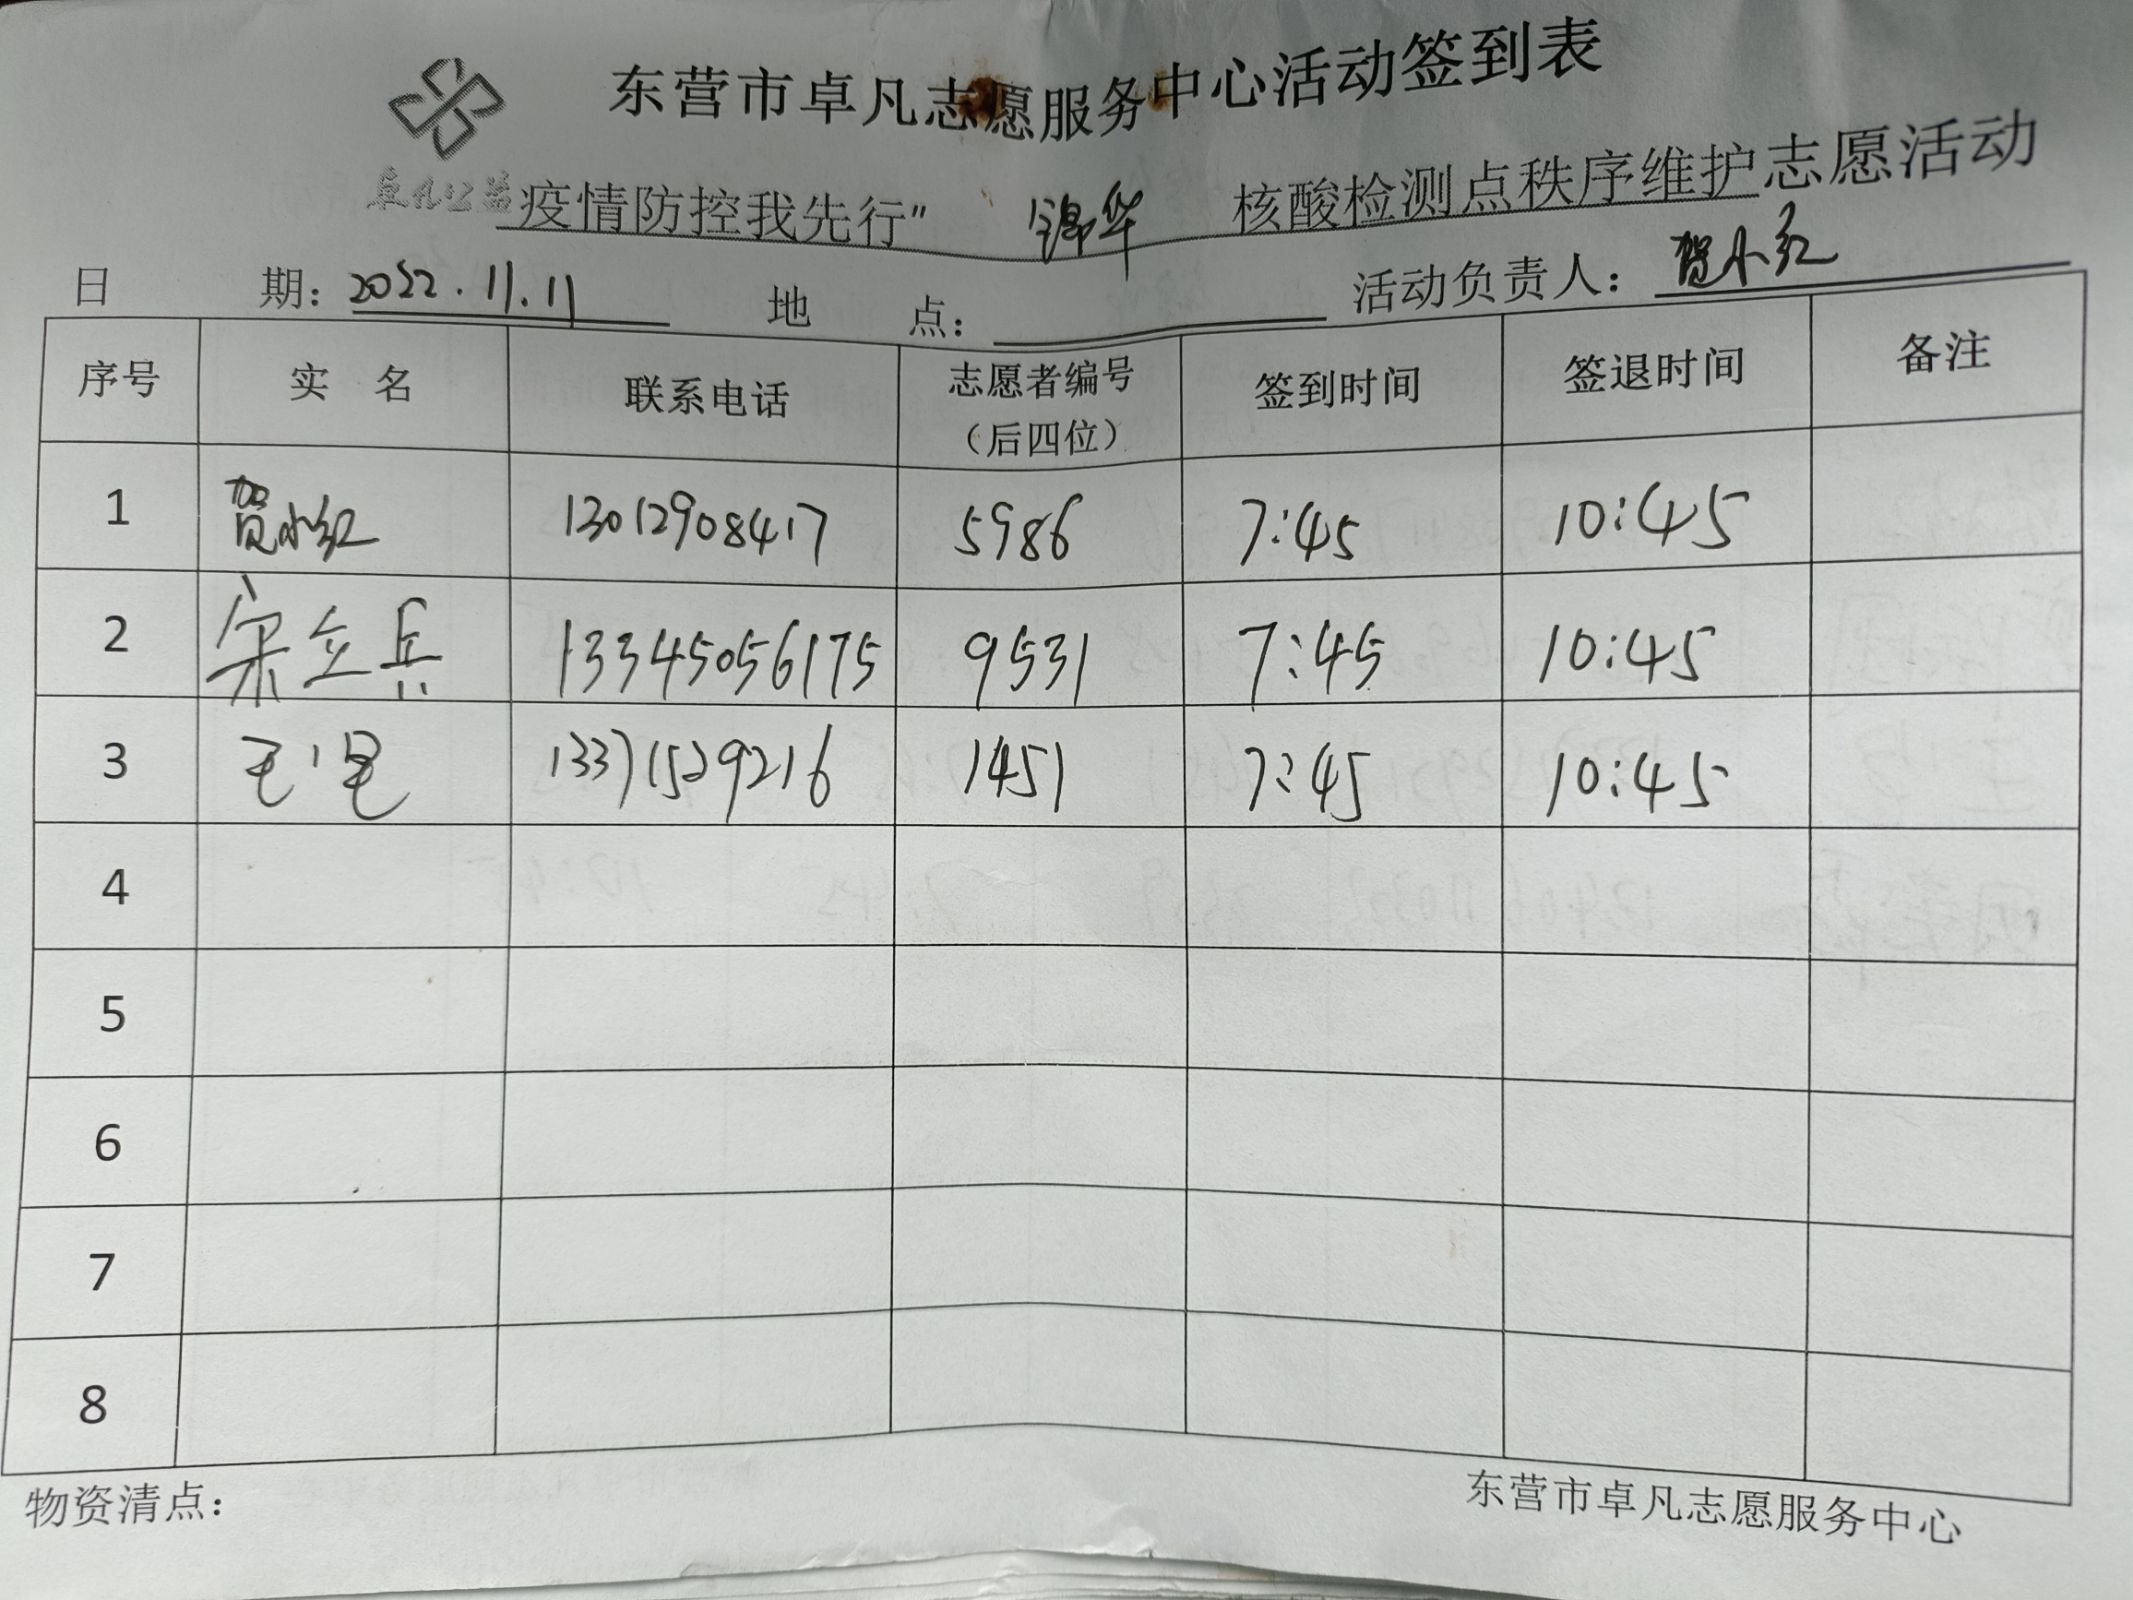 东营市卓凡志愿服务中心活动签到表
卓凡公益
疫情防控我先行” 锦华 核酸检测点秩序维护志愿活动
日 期：2022.11.11 地 点： 活动负责人：贺小红
序号 实 名 联系电话 志愿者编号（后四位） 签到时间 签退时间 备注
1 贺小红 13012908417 5986 7:45 10:45
2 宋立兵 13345056175 9531 7:45 10:45
3 13371529216 1451 7:45 10:45
4
5
6
7
8
物资清点：
东营市卓凡志愿服务中心